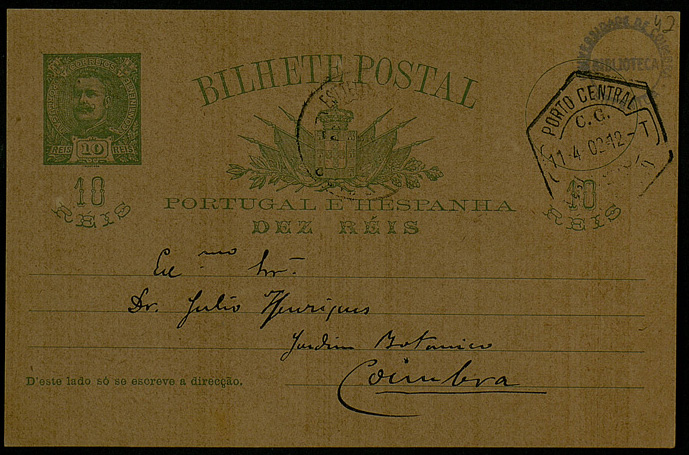 42
UNIVERSIDADE DE COIMBRA
BIBLIOTECA
CORREIOS
BILHETE POSTAL
PORTO CENTRAL
C. G.
11-4-02 12-T
REIS 10 REIS
10
REIS
10
REIS
PORTUGAL E HESPANHA
DEZ RÉIS
Ex.mo Snr.
Dr. Julio Henriques
Jardim Botanico
Coimbra
D'este lado só se escreve a direcção.